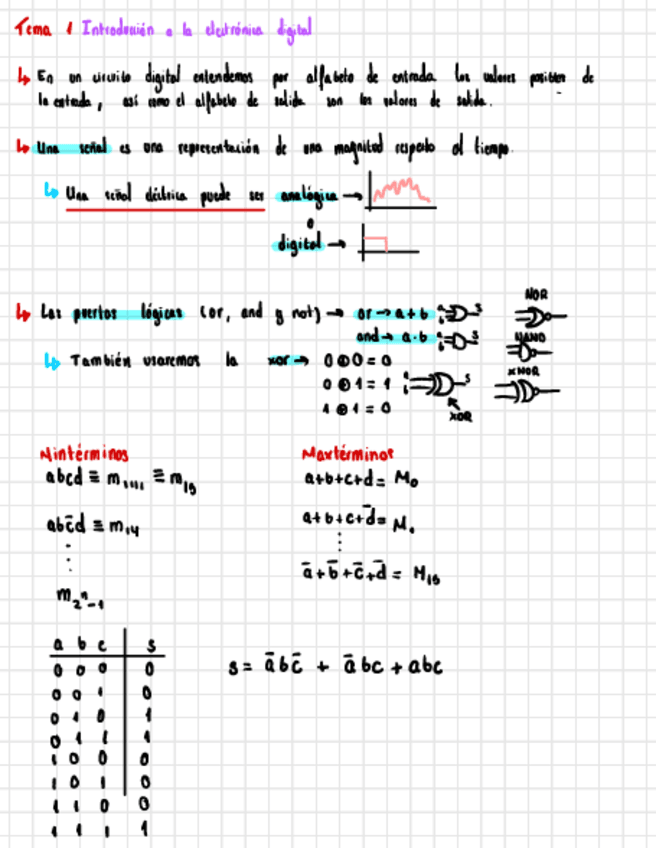 Tema 1 Introducción a la electrónica digital
↳ En un circuito digital entendemos por alfabeto de entrada los valores posibles de
la entrada, así como el alfabeto de salida son los valores de salida.
↳ Una señal es una representación de una magnitud respecto al tiempo.
↳ Una señal eléctrica puede ser analógica →
o
digital →
↳ Las puertas lógicas (or, and y not) → or → a + b
and → a · b
NOR
NAND
↳ También usaremos la xor → 0 ⊕ 0 = 0
0 ⊕ 1 = 1
1 ⊕ 1 = 0
XNOR
XOR
Mintérminos
abcd ≡ m₁₁₁₁ ≡ m₁₅
abc̄d ≡ m₁₄
m₂ⁿ₋₁
Maxtérminos
a+b+c+d = M₀
a+b+c+d̄ = M₁
ā+b̄+c̄+d̄ = M₁₅
a b c s
0 0 0 0
0 0 1 0
0 1 0 1
0 1 1 1
1 0 0 0
1 0 1 0
1 1 0 0
1 1 1 1
s = ābc̄ + ābc + abc